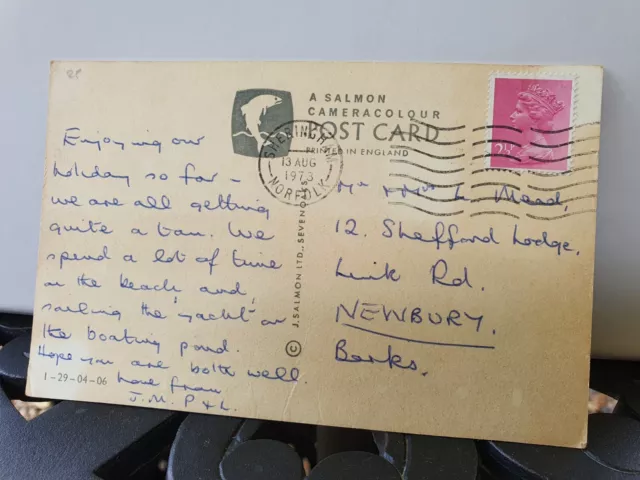 2P
A SALMON
CAMERACOLOUR
POST CARD
PRINTED IN ENGLAND
13 AUG
1973
NORFOLK
2½
Enjoying our
holiday so far -
we are all getting
quite a tan. We
spend a lot of time
on the beach, and,
sailing the 'yacht' on
the boating pond.
Hope you are both well.
love from
J. M. P & L.
1-29-04-06
© J. SALMON LTD., SEVENOAKS
Mr & Mrs L. Mead,
12. Shefford Lodge,
Link Rd.
NEWBURY.
Berks.